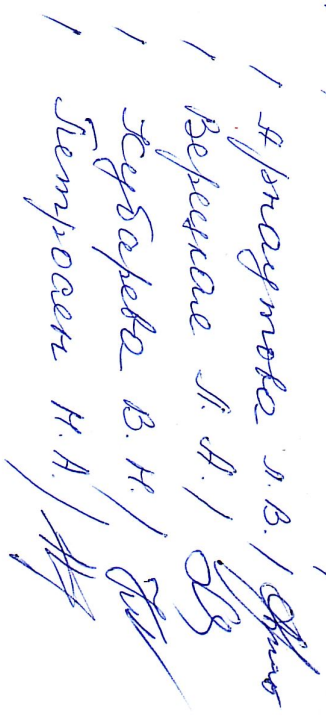 / Арнаутова Л.В. /
/ Верецкая Л.А. /
/ Кубарева В.Н. /
/ Петросен Н.А. /